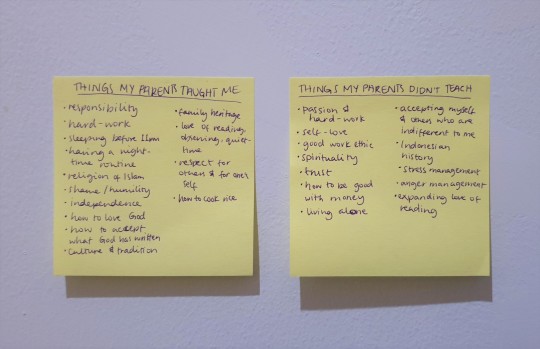 THINGS MY PARENTS TAUGHT ME
• responsibility
• hard-work
• sleeping before 11pm
• having a night-
time routine
• religion of Islam
• shame/humility
• independence
• how to love God
• how to accept
what God has written
• culture & tradition
• family heritage
• love of reading,
observing, quiet-
time
• respect for
others & for one's
self
• how to cook rice
THINGS MY PARENTS DIDN'T TEACH
• passion &
hard-work
• self-love
• good work ethic
• spirituality
• trust
• how to be good
with money
• living alone
• accepting myself
& others who are
indifferent to me
• Indonesian
history
• stress management
• anger management
• expanding love of
reading